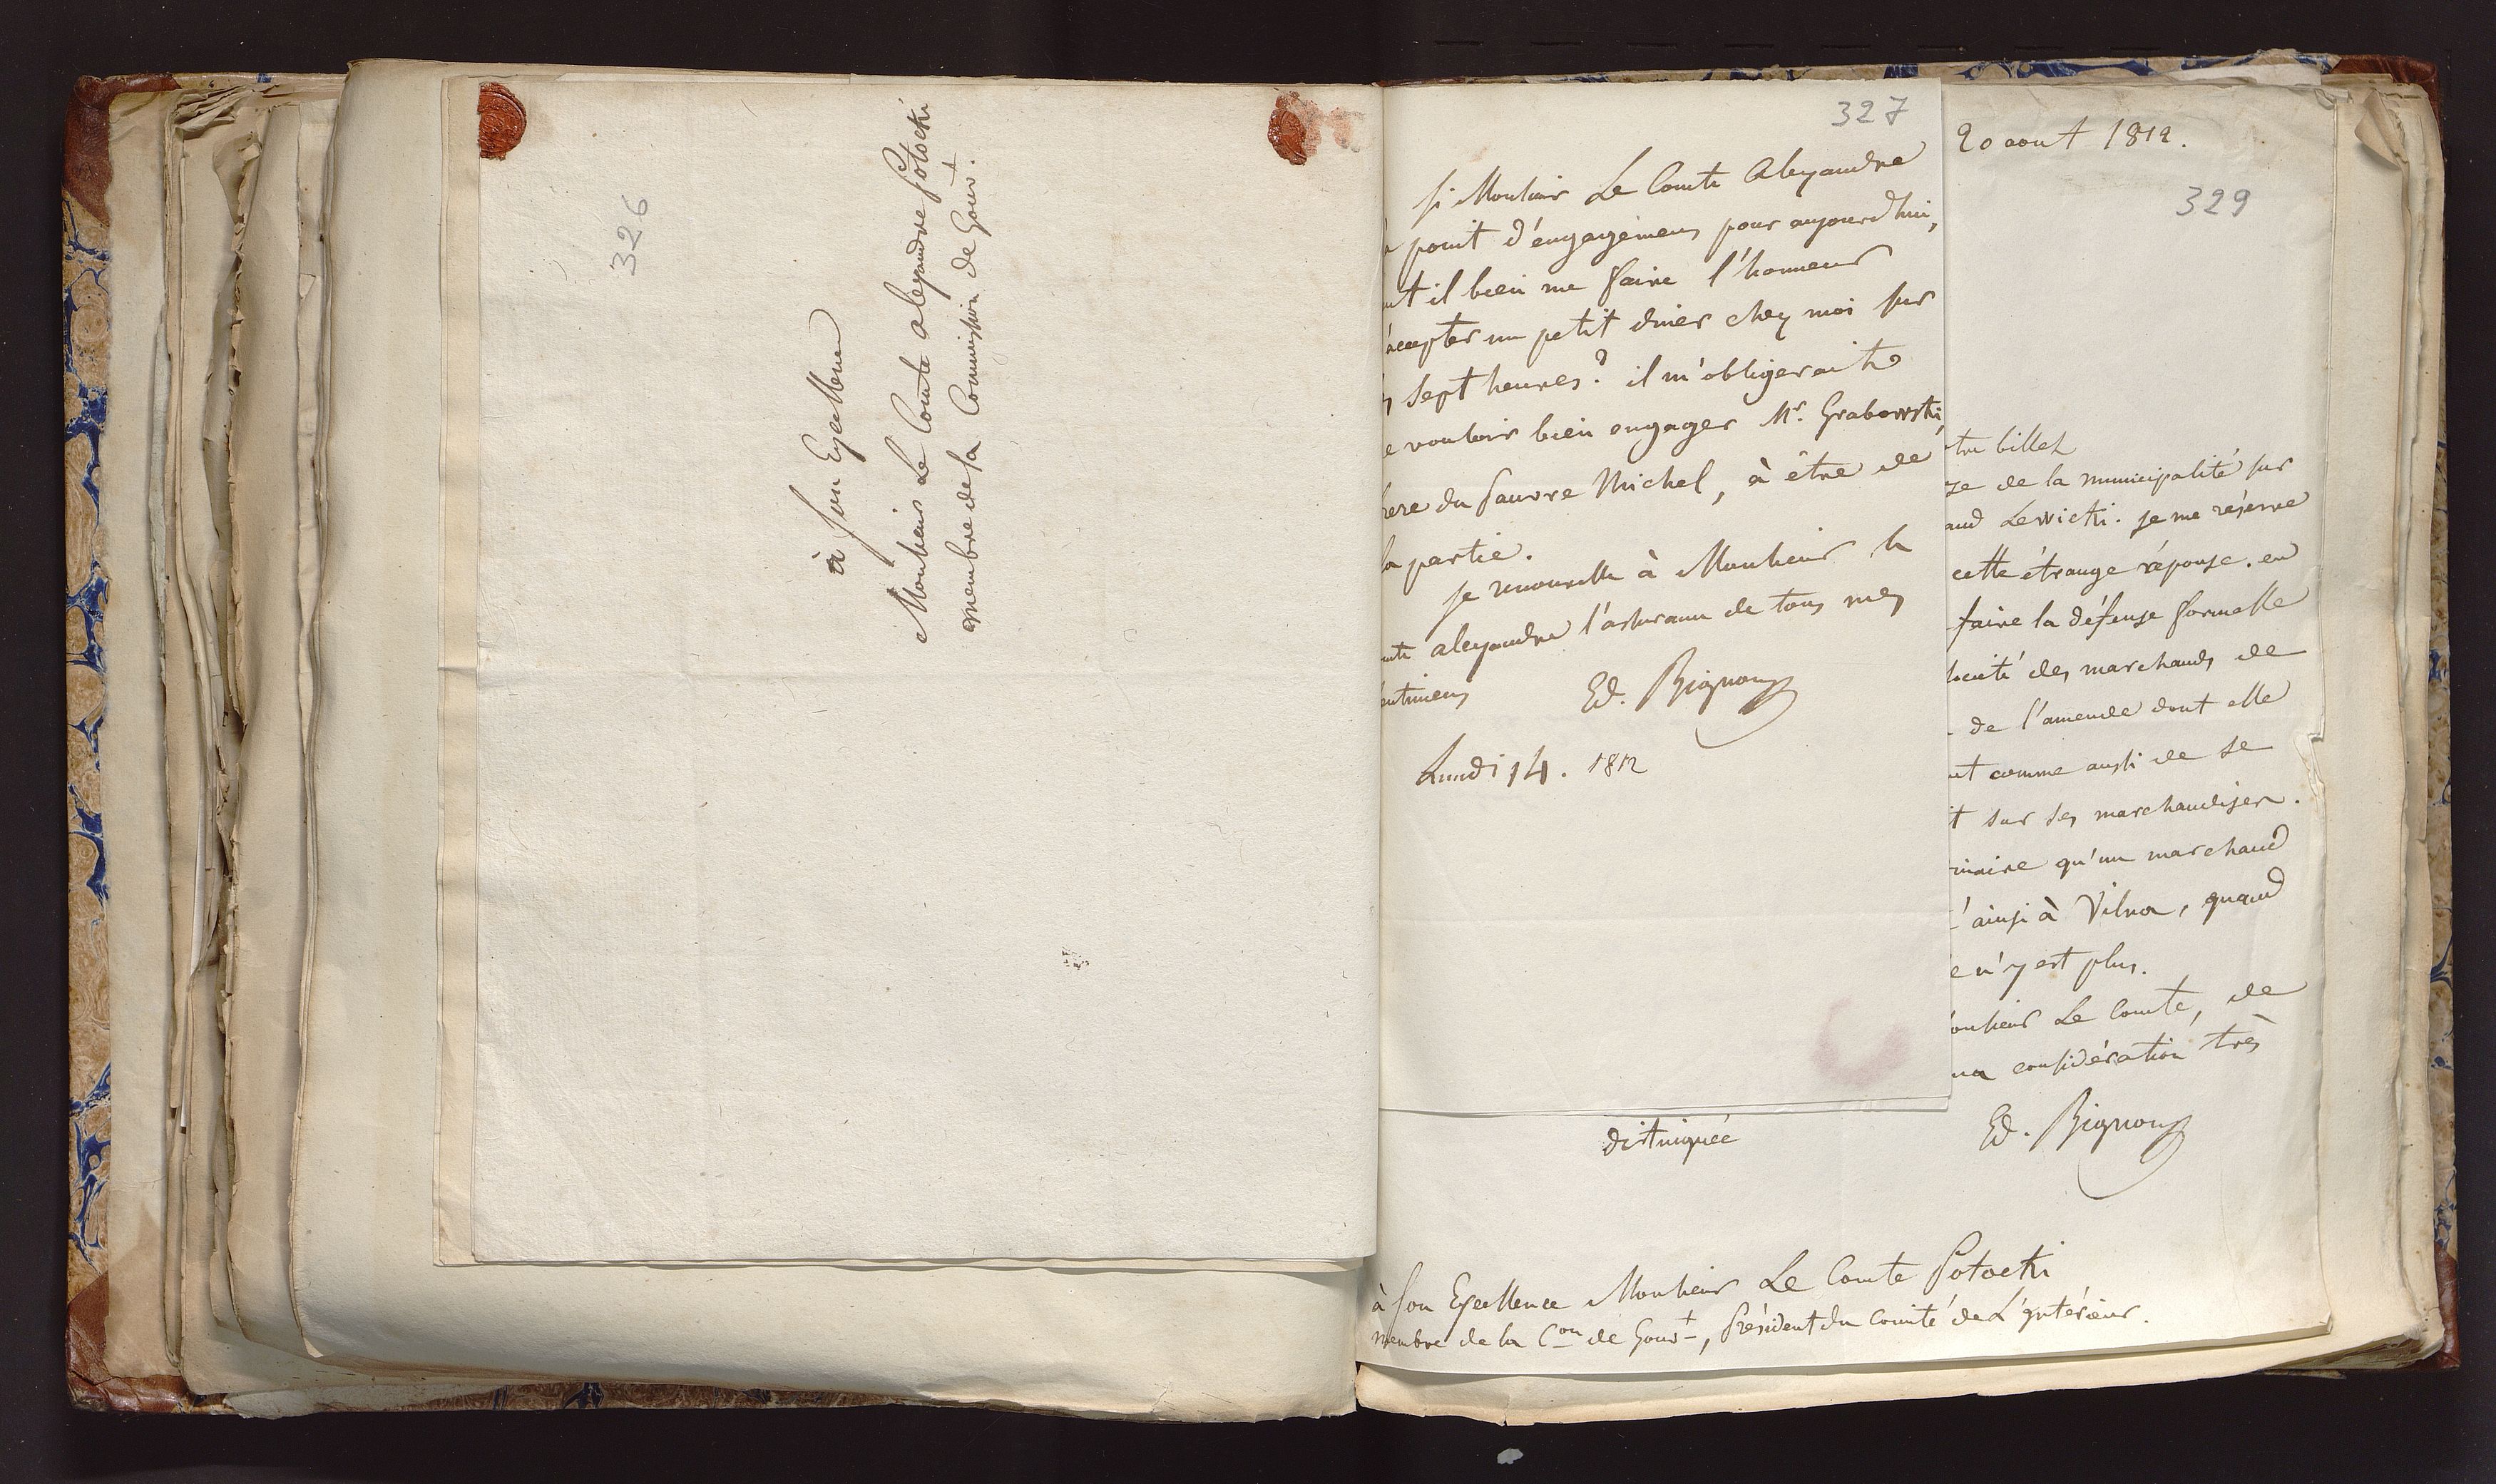 326
à Son Excellence
Monsieur Le Comte alexandre Potocki
membre de la Commission de Gouvt.
327
si Monsieur Le Comte Alexandre
point d'engagemens pour aujourd'hui,
il bien me faire l'honneur
accepter un petit diner chez moi sur
sept heures? il m'obligerait
vouloir bien engager Mr. Grabowski,
du pauvre Michel, à être de
la partie.
je renouvelle à Monsieur le
alexandre l'assurance de tous mes
entimens
Ed. Bignon
Lundi 14. 1812
20 aout 1812.
329
tre billet
se de la municipalité sur
and Lewicki. je me réserve
cette étrange réponse. en
faire la défense formelle
des marchands de
de l'amende dont elle
nt comme aussi de se
t sur ses marchandises.
inaire qu'un marchand
ainsi à Vilna, quand
e n'y est plus.
onsieur Le Comte, de
ma considération très
distinguée
Ed. Bignon
à Son Excellence Monsieur Le Comte Potocki
membre de la Con de Gouvt, Président du Comité de L'Intérieur.